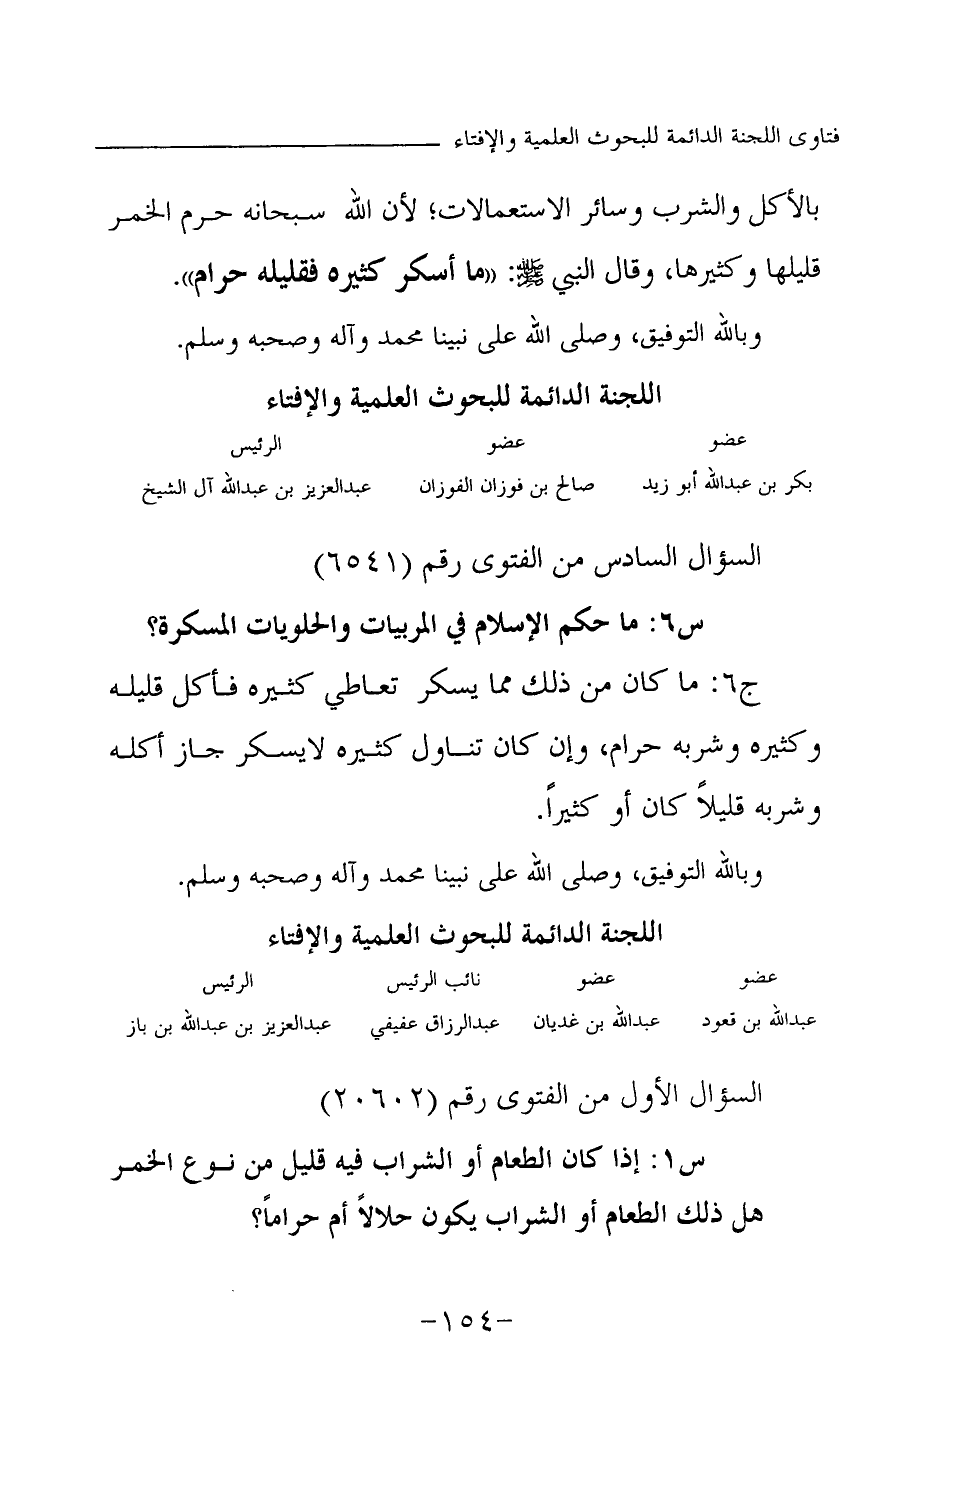 فتاوى اللجنة الدائمة للبحوث العلمية والإفتاء
بالأكل والشرب وسائر الاستعمالات؛ لأن الله سبحانه حرم الخمر
قليلها وكثيرها، وقال النبي ﷺ: ((ما أسكر كثيره فقليله حرام)).
وبالله التوفيق، وصلى الله على نبينا محمد وآله وصحبه وسلم.
اللجنة الدائمة للبحوث العلمية والإفتاء
عضو عضو الرئيس
بكر بن عبدالله أبو زيد صالح بن فوزان الفوزان عبدالعزيز بن عبدالله آل الشيخ
السؤال السادس من الفتوى رقم (٦٥٤١)
س٦: ما حكم الإسلام في المربيات والحلويات المسكرة؟
ج٦: ما كان من ذلك مما يسكر تعاطي كثيره فأكل قليله
وكثيره وشربه حرام، وإن كان تناول كثيره لايسكر جاز أكله
وشربه قليلاً كان أو كثيراً.
وبالله التوفيق، وصلى الله على نبينا محمد وآله وصحبه وسلم.
اللجنة الدائمة للبحوث العلمية والإفتاء
عضو عضو نائب الرئيس الرئيس
عبدالله بن قعود عبدالله بن غديان عبدالرزاق عفيفي عبدالعزيز بن عبدالله بن باز
السؤال الأول من الفتوى رقم (٢٠٦٠٢)
س١: إذا كان الطعام أو الشراب فيه قليل من نوع الخمر
هل ذلك الطعام أو الشراب يكون حلالاً أم حراماً؟
-١٥٤-